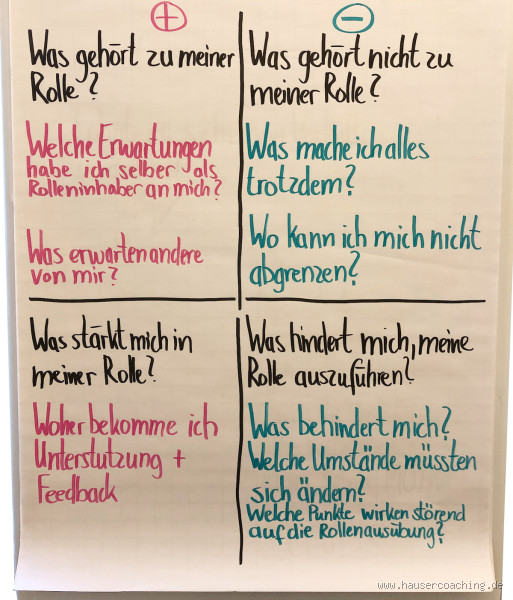 +
Was gehört zu meiner
Rolle?
Welche Erwartungen
habe ich selber als
Rolleninhaber an mich?
Was erwarten andere
von mir?
−
Was gehört nicht zu
meiner Rolle?
Was mache ich alles
trotzdem?
Wo kann ich mich nicht
abgrenzen?
Was stärkt mich in
meiner Rolle?
Woher bekomme ich
Unterstutzung +
Feedback
Was hindert mich, meine
Rolle auszuführen?
Was behindert mich?
Welche Umstände müssten
sich ändern?
Welche Punkte wirken störend
auf die Rollenausübung?
www.hausercoaching.de